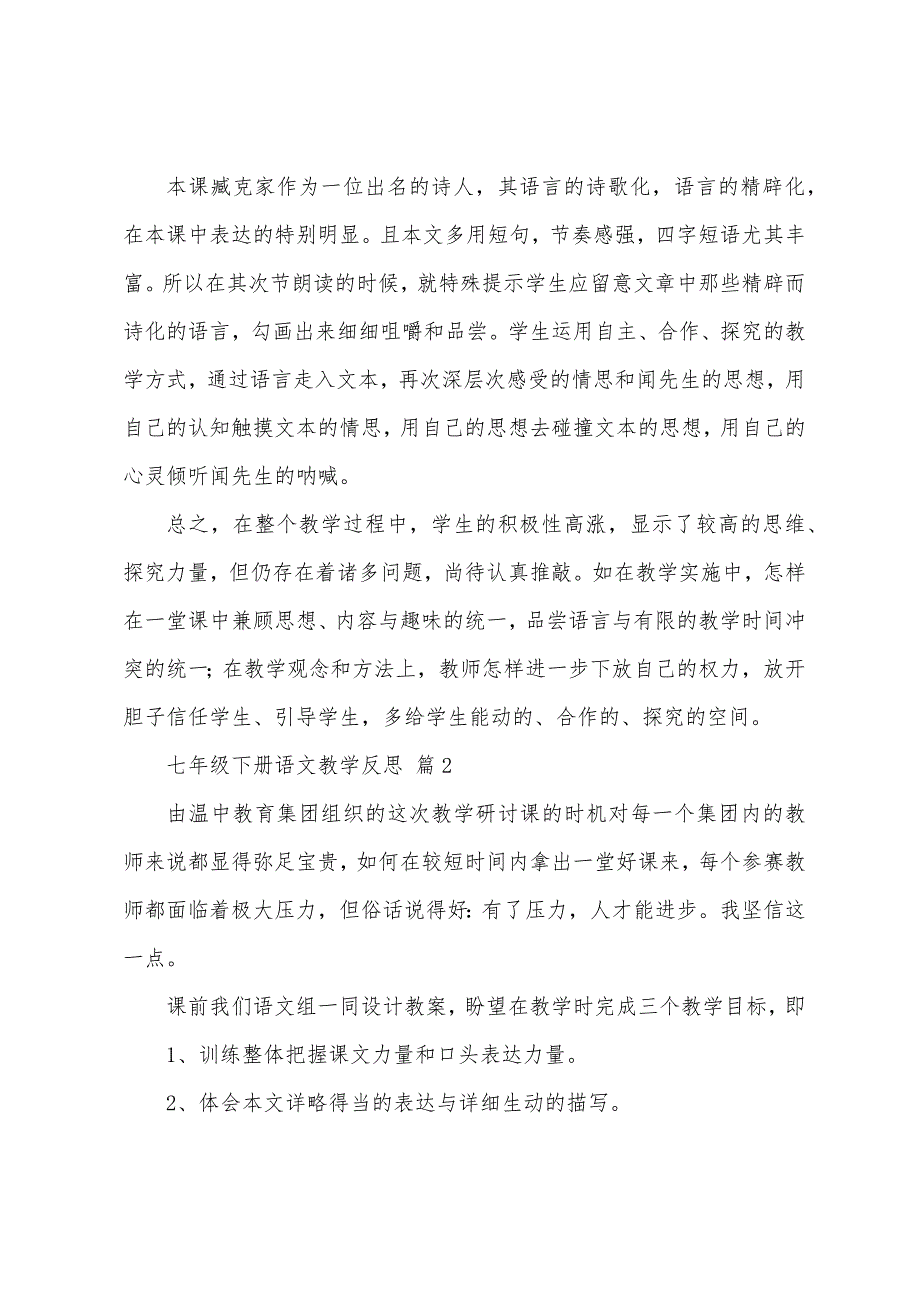 本课臧克家作为一位出名的诗人，其语言的诗歌化，语言的精辟化，
在本课中表达的特别明显。且本文多用短句，节奏感强，四字短语尤其丰
富。所以在其次节朗读的时候，就特殊提示学生应留意文章中那些精辟而
诗化的语言，勾画出来细细咀嚼和品尝。学生运用自主、合作、探究的教
学方式，通过语言走入文本，再次深层次感受的情思和闻先生的思想，用
自己的认知触摸文本的情思，用自己的思想去碰撞文本的思想，用自己的
心灵倾听闻先生的呐喊。
总之，在整个教学过程中，学生的积极性高涨，显示了较高的思维、
探究力量，但仍存在着诸多问题，尚待认真推敲。如在教学实施中，怎样
在一堂课中兼顾思想、内容与趣味的统一，品尝语言与有限的教学时间冲
突的统一；在教学观念和方法上，教师怎样进一步下放自己的权力，放开
胆子信任学生、引导学生，多给学生能动的、合作的、探究的空间。
七年级下册语文教学反思 篇2
由温中教育集团组织的这次教学研讨课的时机对每一个集团内的教
师来说都显得弥足宝贵，如何在较短时间内拿出一堂好课来，每个参赛教
师都面临着极大压力，但俗话说得好：有了压力，人才能进步。我坚信这
一点。
课前我们语文组一同设计教案，盼望在教学时完成三个教学目标，即
1、训练整体把握课文力量和口头表达力量。
2、体会本文详略得当的表达与详细生动的描写。